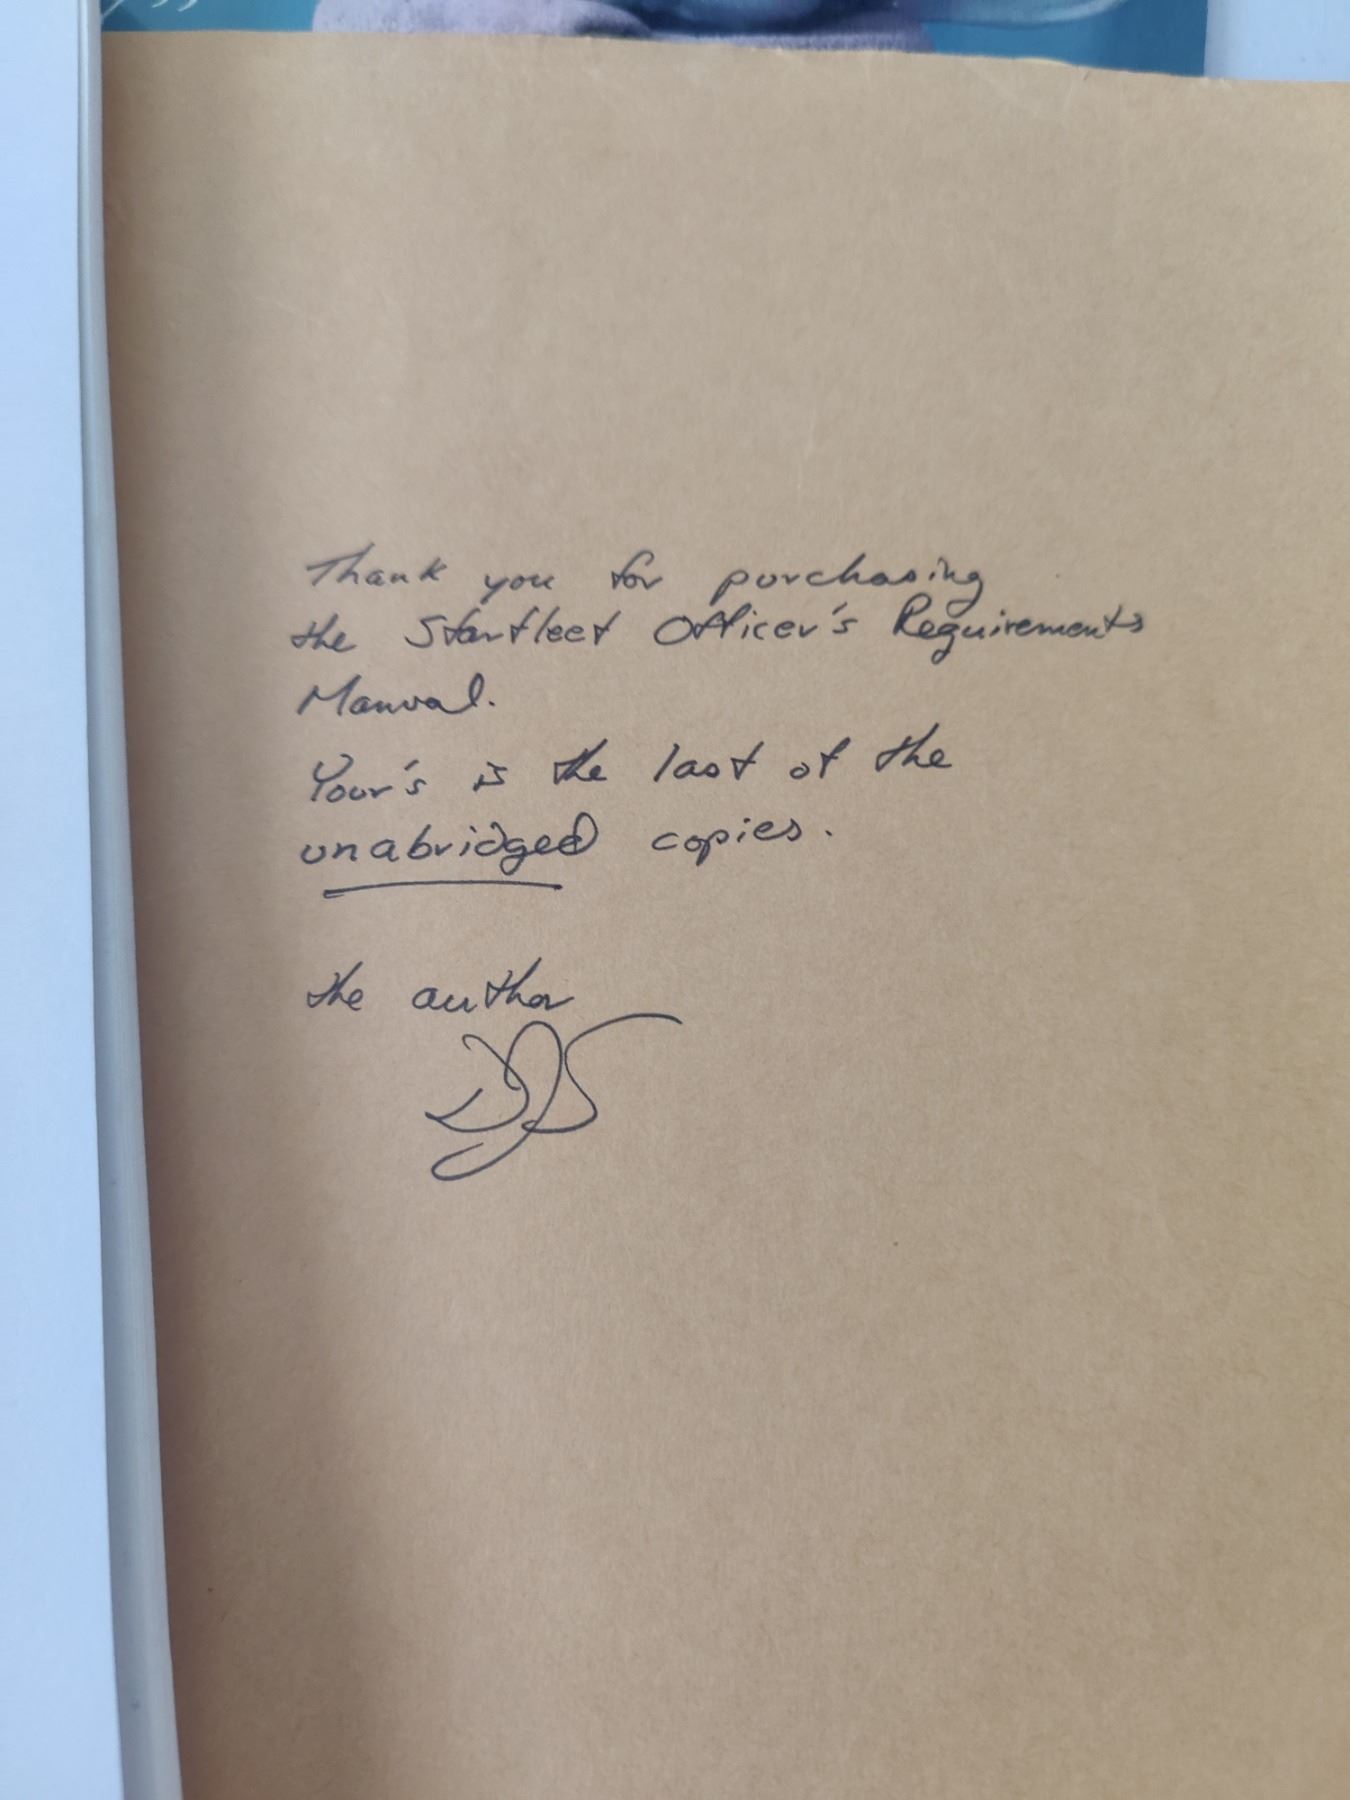 Thank you for purchasing
the Starfleet Officer's Requirements
Manual.
Your's is the last of the
unabridged copies.
the author
DJS